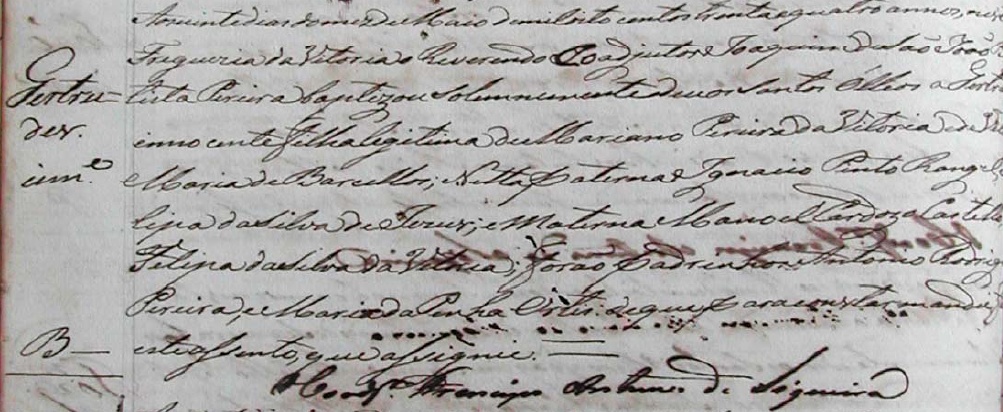 Aos vinte dias do mez de Maio de mil oito centos trinta e quatro annos, n
Gertru= Freguezia da Vitoria o Reverendo Coadjutor Joaquim de São João
des. tista Pereira baptizou solemnemente deu os Santos Óllios a Gertr
inn.e inno cente filha legitima de Mariano Pereira da Vitoria e de
Maria de Barcellos; Netta Paterna Ignacio Pinto Range
lipa da Silva de Jezus; e Materna Manoel Cardozo Castell
Filipa da Silva da Vitoria; forão Padrinhos Antonio Rodrig
Pereira, e Maria da Penha Ortis: de que para constar mandei
B este assento, que assignei.
Francisco Antunes de Siqueira